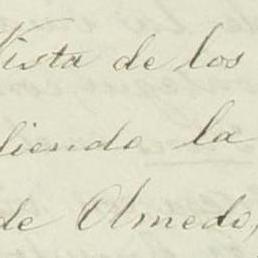 Vista de los
diendo la
de Olmedo,